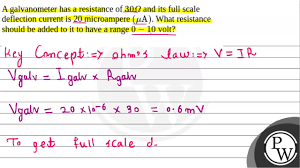 A galvanometer has a resistance of 30Ω and its full scale
deflection current is 20 microampere (μA). What resistance
should be added to it to have a range 0 − 10 volt?
Key Concept:=> ohmos law:=> V=IR
Vgalv = Igalv × Rgalv
Vgalv = 20 × 10-6 × 30 = 0.6mV
To get full scale d
PW